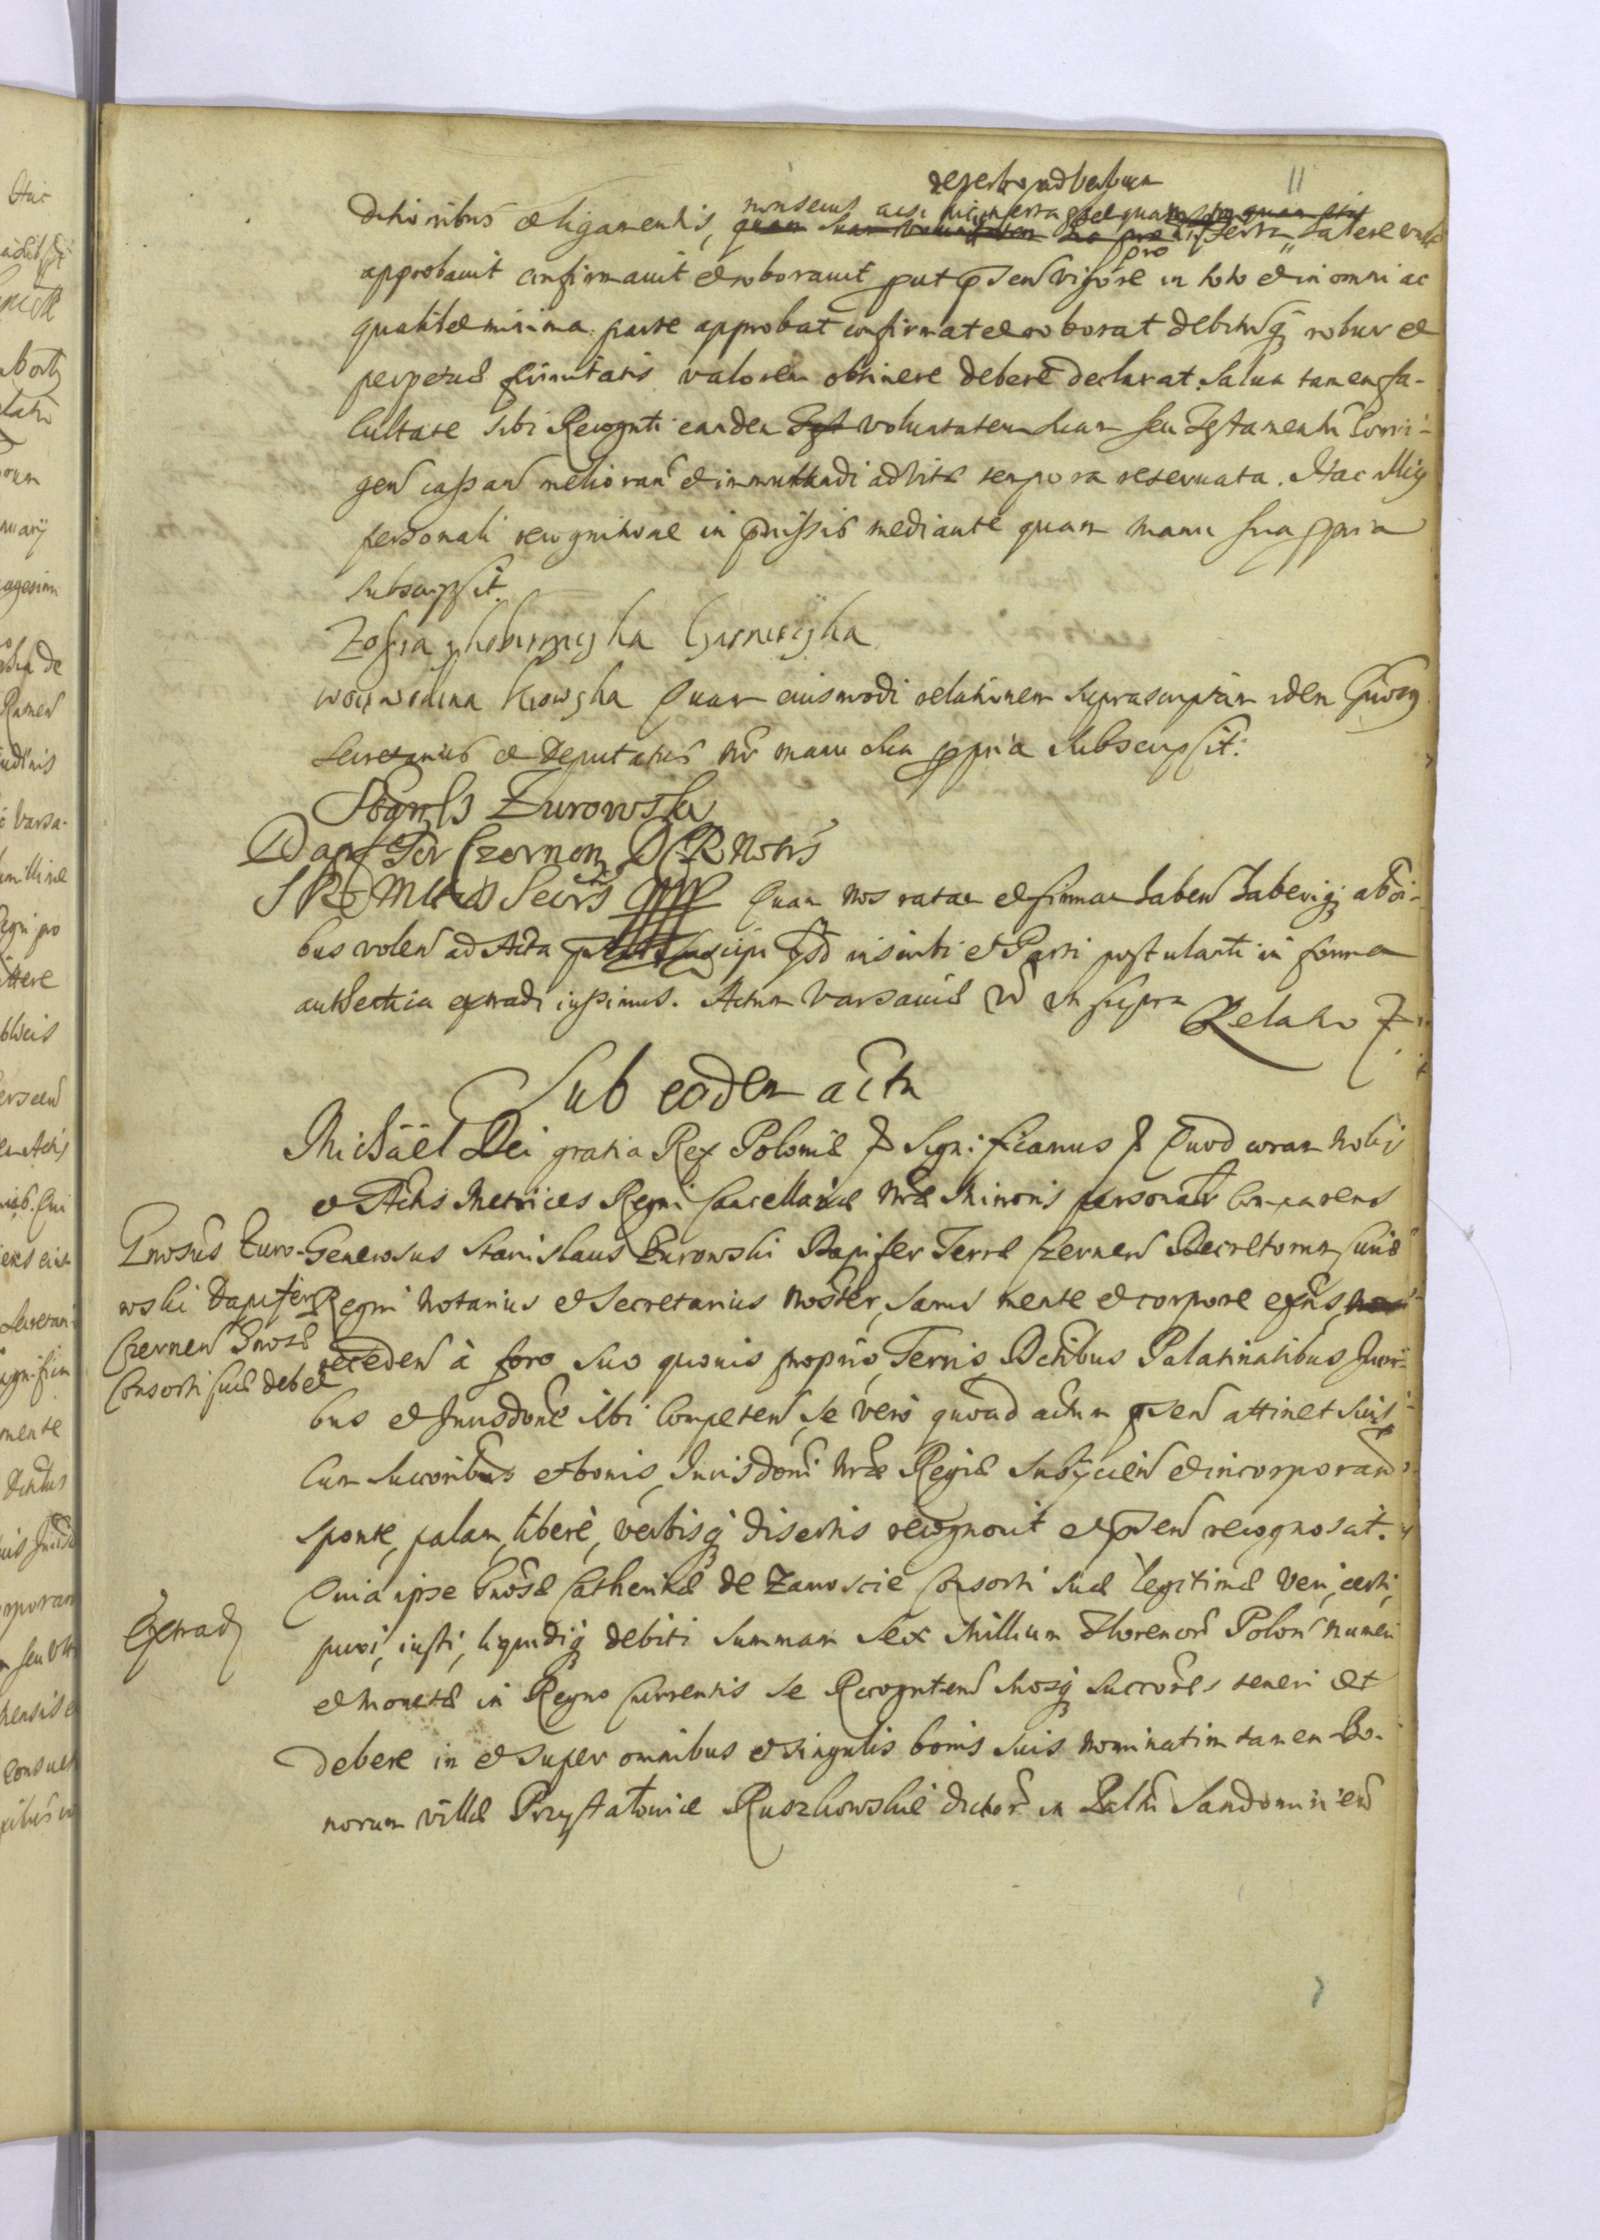 11
de verbo ad verbum
non secus acsi
ditionibus et ligamentis,
approbavit confirmavit et roboravit prout pñ vigore in toto et in omni ac
qualibet minima parte approbat confirmat et roborat debitusq̃ robur et
perpetuæ firmitatis valorem obtinere debere declarat. Salva tamen fa-
cultate sibi Recognti eandem voluntatem suam seu Testamentũ Corri-
gen̄ cassan̄ melioran̄ et immutandi ad vitæ tempora reservata. Hac illius
personali recognitione in præmissis mediante quam manu sua ppria
subscripsit.
Zofia
woiewodzina Kiowska Quam eiusmodi relationem suprascriptam idem Gnosus
Secretarius et Deputatus nr̃ manu sua ppria Subscripsit:
Stanisl Zurowski
Dapif Ter Czernen D C R Notr̃s
S R M Secrs Quam nos ratam et firmam haben̄ haberiq̃ ab oi-
bus volen̄ ad Acta suscipi et Parti postulanti in forma
authentica extradi iussimus. Actum Varsaviæ ut supra Relatio
Sub eodem actu
Michäël Dei gratia Rex Poloniæ Significamus Quod coram Nobis
et Actis Metrices Regni Cancellariæ nr̃æ Minoris personaĺr Comparens
Generosus Stanislaus Zurowski Dapifer Terræ Czernen̄ Decretorum Curiæ
Regni Notarius et Secretarius noster, Sanus mente et corpore exñs,
receden̄ à foro suo quovis proprio, Terris, Districtibus Palatinatibus Juri-
bus et Jurisdone sibi Competen̄, se vero quoad actum psen̄ attinet suis
Cum Succoribus et bonis, Jurisdoni nr̃æ Regiæ Subijcien̄ et incorporan̄
sponte, palam, liberè, verbisq̃ disertis recognovit et psen̄ recognoscit.
Quia ipse Gnosæ Catherinæ de Zamoscie Consorti suæ legitimæ veri, certi,
puri, iusti, liquidiq̃ debiti summam Sex Millium Florenor̃ Polon̄ numeri
et Monetæ in Regno Currentis se Recognten̄ suosq̃ Succores teneri et
debere in et super omnibus et singulis bonis suis nominatim tamen Bo-
norum villæ Przystałowice Ruszkowskie dictor̃ in Paltũ Sandomirien̄
Gnosus Zuro-
wski Dapifer
Czernen̄ Gnosæ
Consorti suæ debet
Extrad